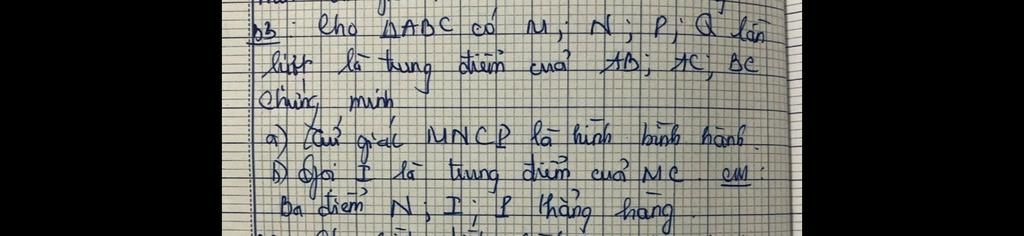 b3: Cho ΔABC có M; N; P; Q lần
lượt là trung điểm của AB; AC; BC
Chứng minh
a) Tứ giác MNCP là hình bình hành.
b) Gọi I là trung điểm của MC. CM:
Ba điểm N; I; P thẳng hàng.